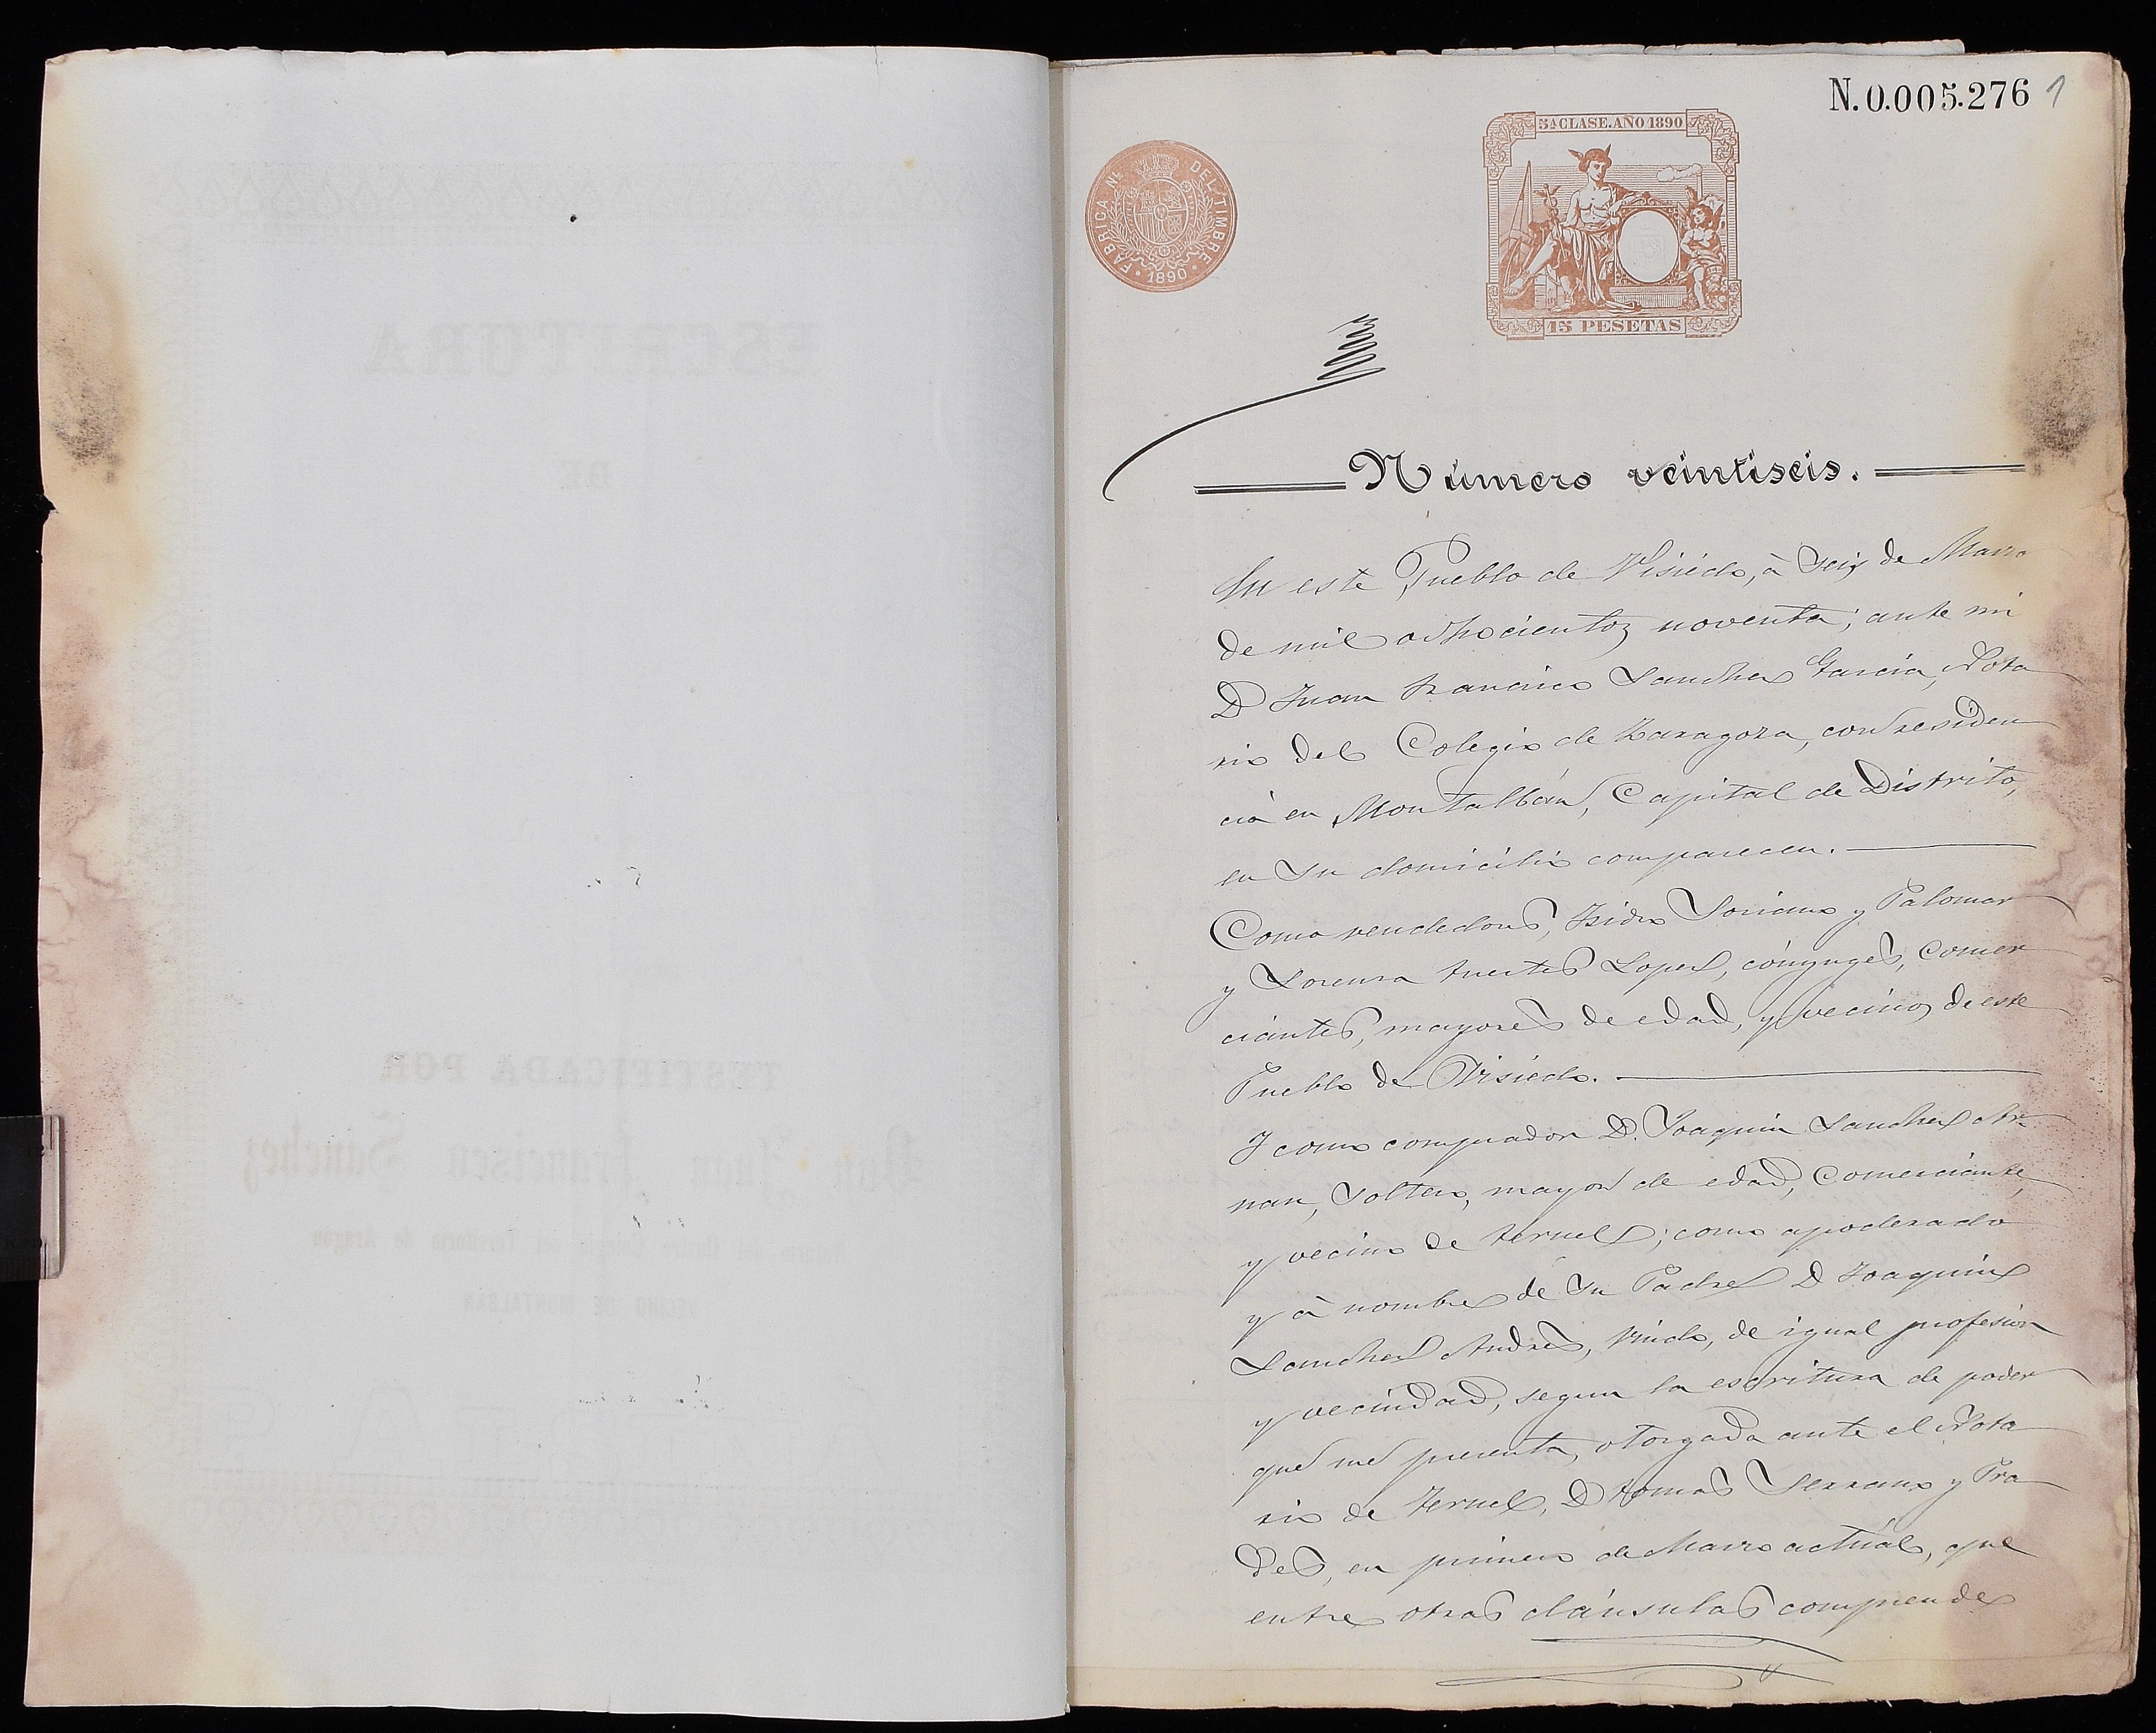 N.0.005.276 1
5ª CLASE. AÑO 1890
FÁBRICA Nl. DEL TIMBRE
1890
15 PESETAS
Número veintiseis.
En este Pueblo de Visiedo, à seis de Marzo
de mil ochocientos noventa; ante mi
D Juan Francisco Sanchez Garcia, Nota
rio del Colegio de Zaragoza, con residen
cia en Montalbán, Capital de Distrito,
en su domicilio comparecen.
Como vendedores, Isidro Soriano y Palomar
y Lorenza Fuertes Lopez, cónyuges, comer
ciantes, mayores de edad, y vecinos de este
Pueblo de Visiedo.
Y como comprador D. Joaquin Sanchez Ar-
nau, soltero, mayor de edad, Comerciante,
y vecino de Teruel; como apoderado
y à nombre de su Padre D Joaquin
Sanchez Andres, viudo, de igual profesion
y vecindad, segun la escritura de poder
que me presenta, otorgada ante el Nota
rio de Teruel, D Tomas Serrano y Pra
des, en primero de Marzo actual, que
entre otras cláusulas comprende
ESCRITURA
DE
TESTIFICADA POR
Don Juan Francisco Sanchez
Colegio del Territorio de Aragon
VECINO DE MONTALBÁN